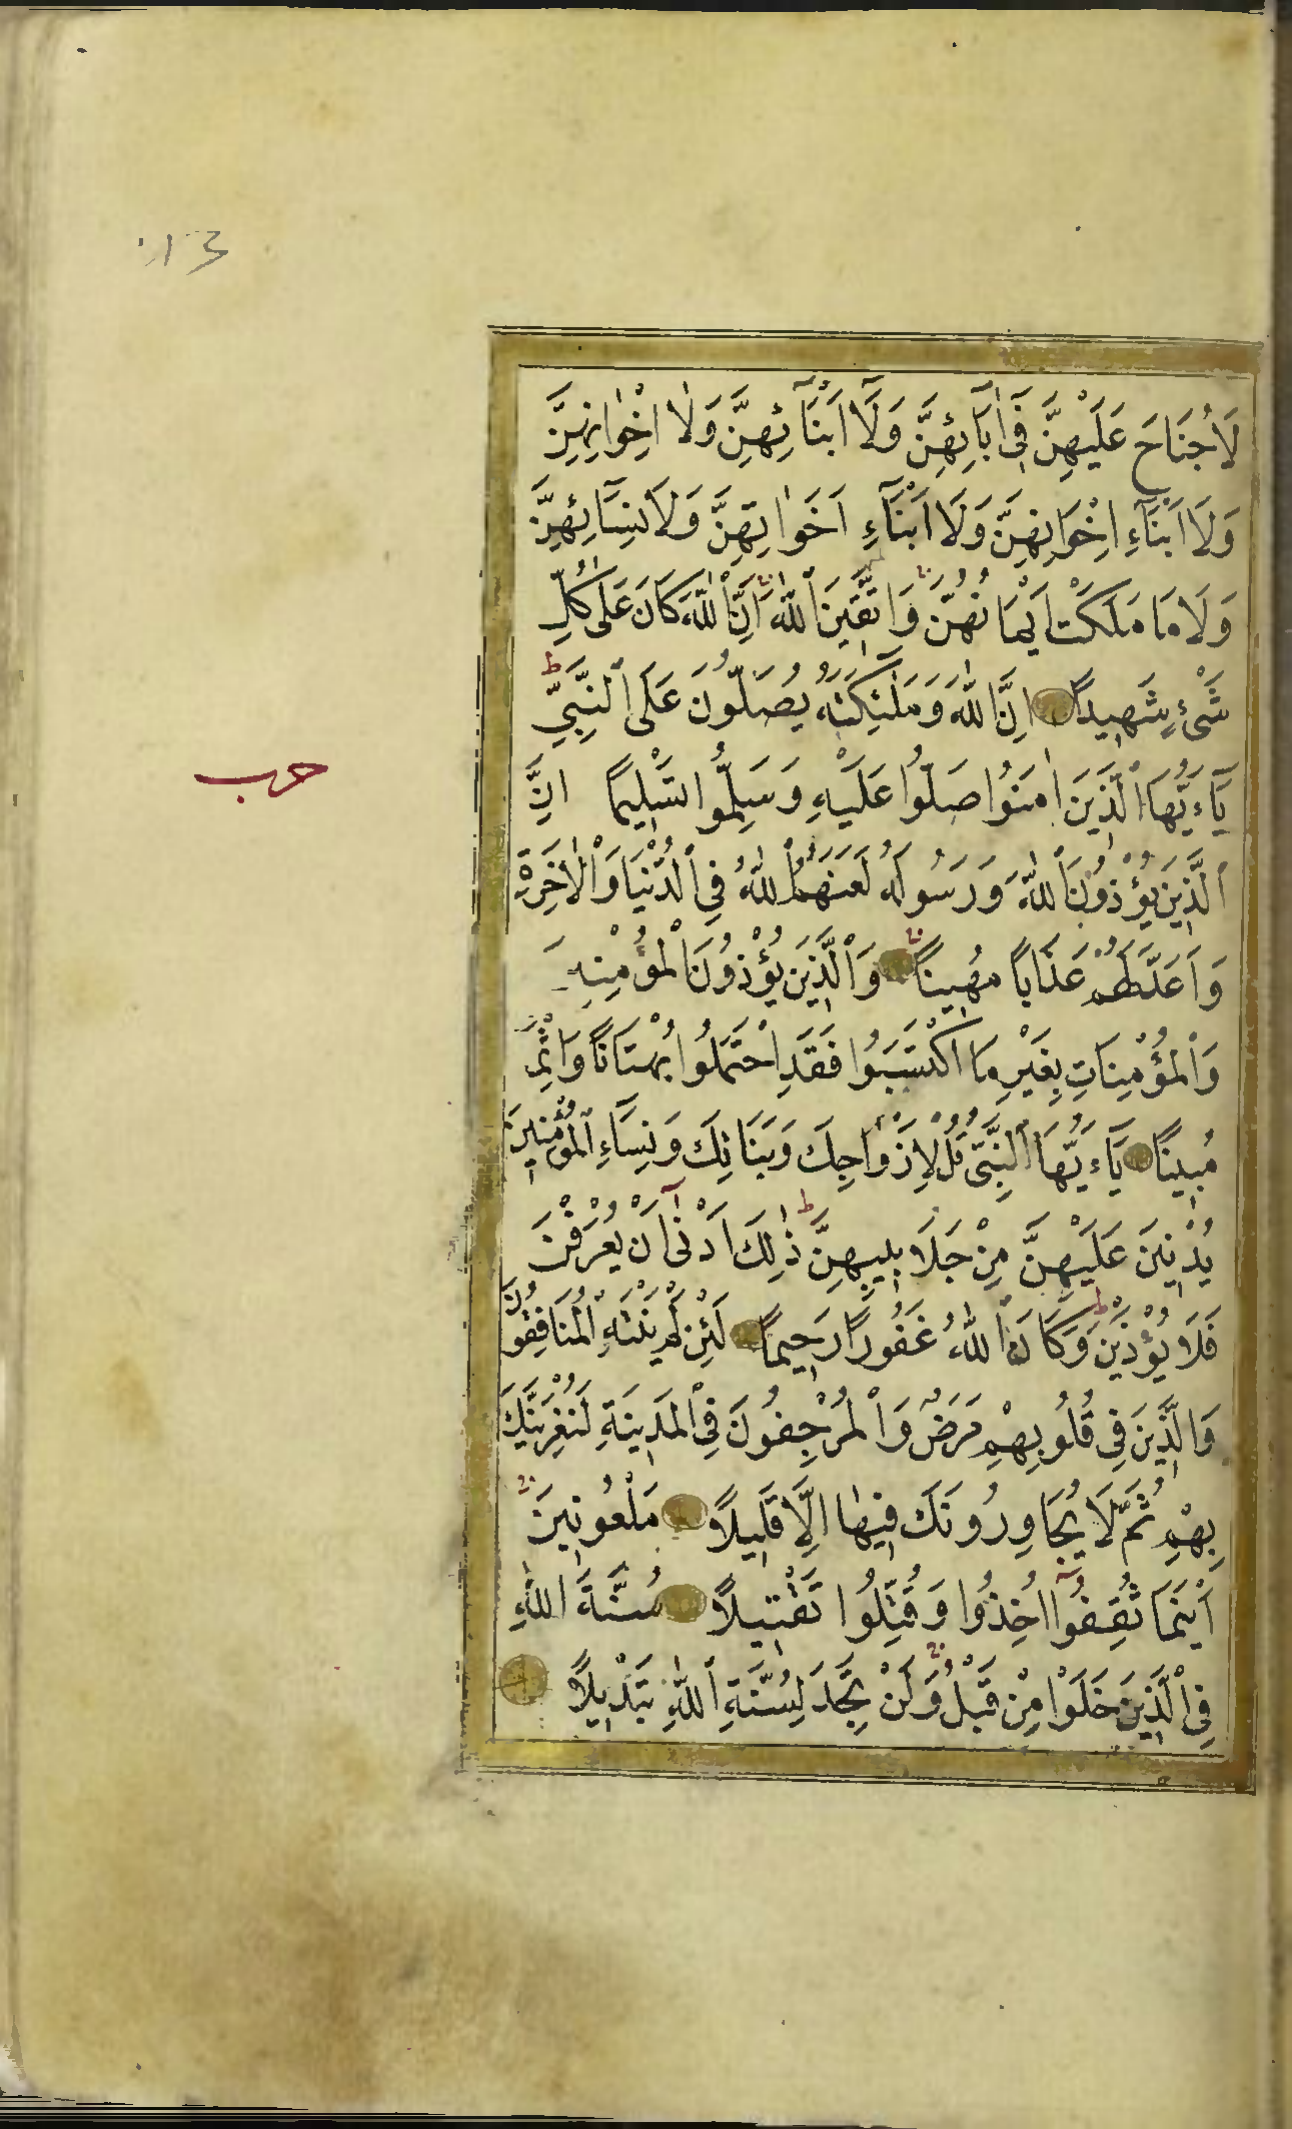 لَا جُنَاحَ عَلَيْهِنَّ فِٓى اٰبَٓائِهِنَّ وَلَٓا اَبْنَٓائِهِنَّ وَلَٓا اِخْوَانِهِنَّ
وَلَٓا اَبْنَٓاءِ اِخْوَانِهِنَّ وَلَٓا اَبْنَٓاءِ اَخَوَاتِهِنَّ وَلَا نِسَٓائِهِنَّ
وَلَا مَا مَلَكَتْ اَيْمَانُهُنَّ وَاتَّقِينَ اللّٰهَ اِنَّ اللّٰهَ كَانَ عَلٰى كُلِّ
شَىْءٍ شَهِيدًا اِنَّ اللّٰهَ وَمَلٰٓئِكَتَهُ يُصَلُّونَ عَلَى النَّبِىِّ ط
يَٓاءَيُّهَا الَّذِينَ اٰمَنُوا صَلُّوا عَلَيْهِ وَسَلِّمُوا تَسْلِيمًا اِنَّ
حزب
الَّذِينَ يُؤْذُونَ اللّٰهَ وَرَسُولَهُ لَعَنَهُمُ اللّٰهُ فِى الدُّنْيَا وَالْاٰخِرَةِ
وَاَعَدَّ لَهُمْ عَذَابًا مُهِينًا وَالَّذِينَ يُؤْذُونَ الْمُؤْمِنِينَ
وَالْمُؤْمِنَاتِ بِغَيْرِ مَا اكْتَسَبُوا فَقَدِ احْتَمَلُوا بُهْتَانًا وَاِثْمًا
مُبِينًا يَٓاءَيُّهَا النَّبِىُّ قُلْ لِاَزْوَاجِكَ وَبَنَاتِكَ وَنِسَٓاءِ الْمُؤْمِنِينَ
يُدْنِينَ عَلَيْهِنَّ مِنْ جَلَابِيبِهِنَّ ط ذٰلِكَ اَدْنٰٓى اَنْ يُعْرَفْنَ
فَلَا يُؤْذَيْنَ ط وَكَانَ اللّٰهُ غَفُورًا رَحِيمًا لَئِنْ لَمْ يَنْتَهِ الْمُنَافِقُونَ
وَالَّذِينَ فِى قُلُوبِهِمْ مَرَضٌ وَالْمُرْجِفُونَ فِى الْمَدِينَةِ لَنُغْرِيَنَّكَ
بِهِمْ ثُمَّ لَا يُجَاوِرُونَكَ فِيهَا اِلَّا قَلِيلًا مَلْعُونِينَ
اَيْنَمَا ثُقِفُٓوا اُخِذُوا وَقُتِّلُوا تَقْتِيلًا سُنَّةَ اللّٰهِ
فِى الَّذِينَ خَلَوْا مِنْ قَبْلُ وَلَنْ تَجِدَ لِسُنَّةِ اللّٰهِ تَبْدِيلًا